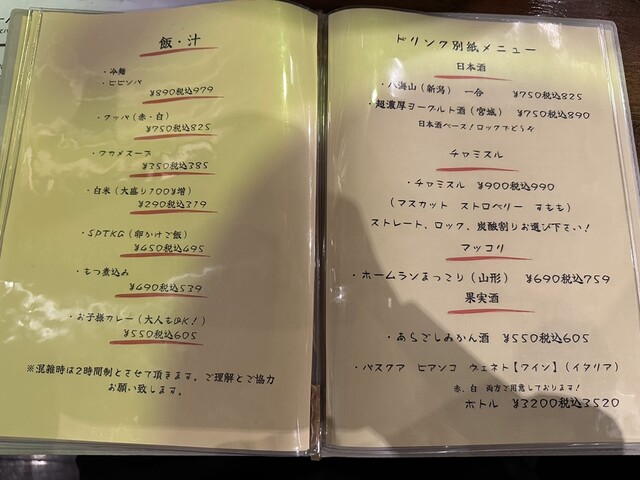 飯・汁
・冷麺
・ビビンバ
¥890税込979
・クッパ（赤・白）
¥750税込825
・ワカメスープ
¥350税込385
・白米（大盛り100¥増）
¥290税込319
・SPTKG（卵かけご飯）
¥450税込495
・もつ煮込み
¥490税込539
・お子様カレー（大人もOK！）
¥550税込605
※混雑時は2時間制とさせて頂きます。ご理解とご協力
お願い致します。
ドリンク別紙メニュー
日本酒
・八海山（新潟） 一合 ¥750税込825
・超濃厚ヨーグルト酒（宮城） ¥750税込890
日本酒ベース！ロックでどうぞ
チャミスル
・チャミスル ¥900税込990
（マスカット ストロベリー すもも）
ストレート、ロック、炭酸割りお選び下さい！
マッコリ
・ホームランまっこり（山形） ¥690税込759
果実酒
・あらごしみかん酒 ¥550税込605
・パスクア ビアンコ ヴェネト【ワイン】（イタリア）
赤、白 両方ご用意しております！
ボトル ¥3200税込3520